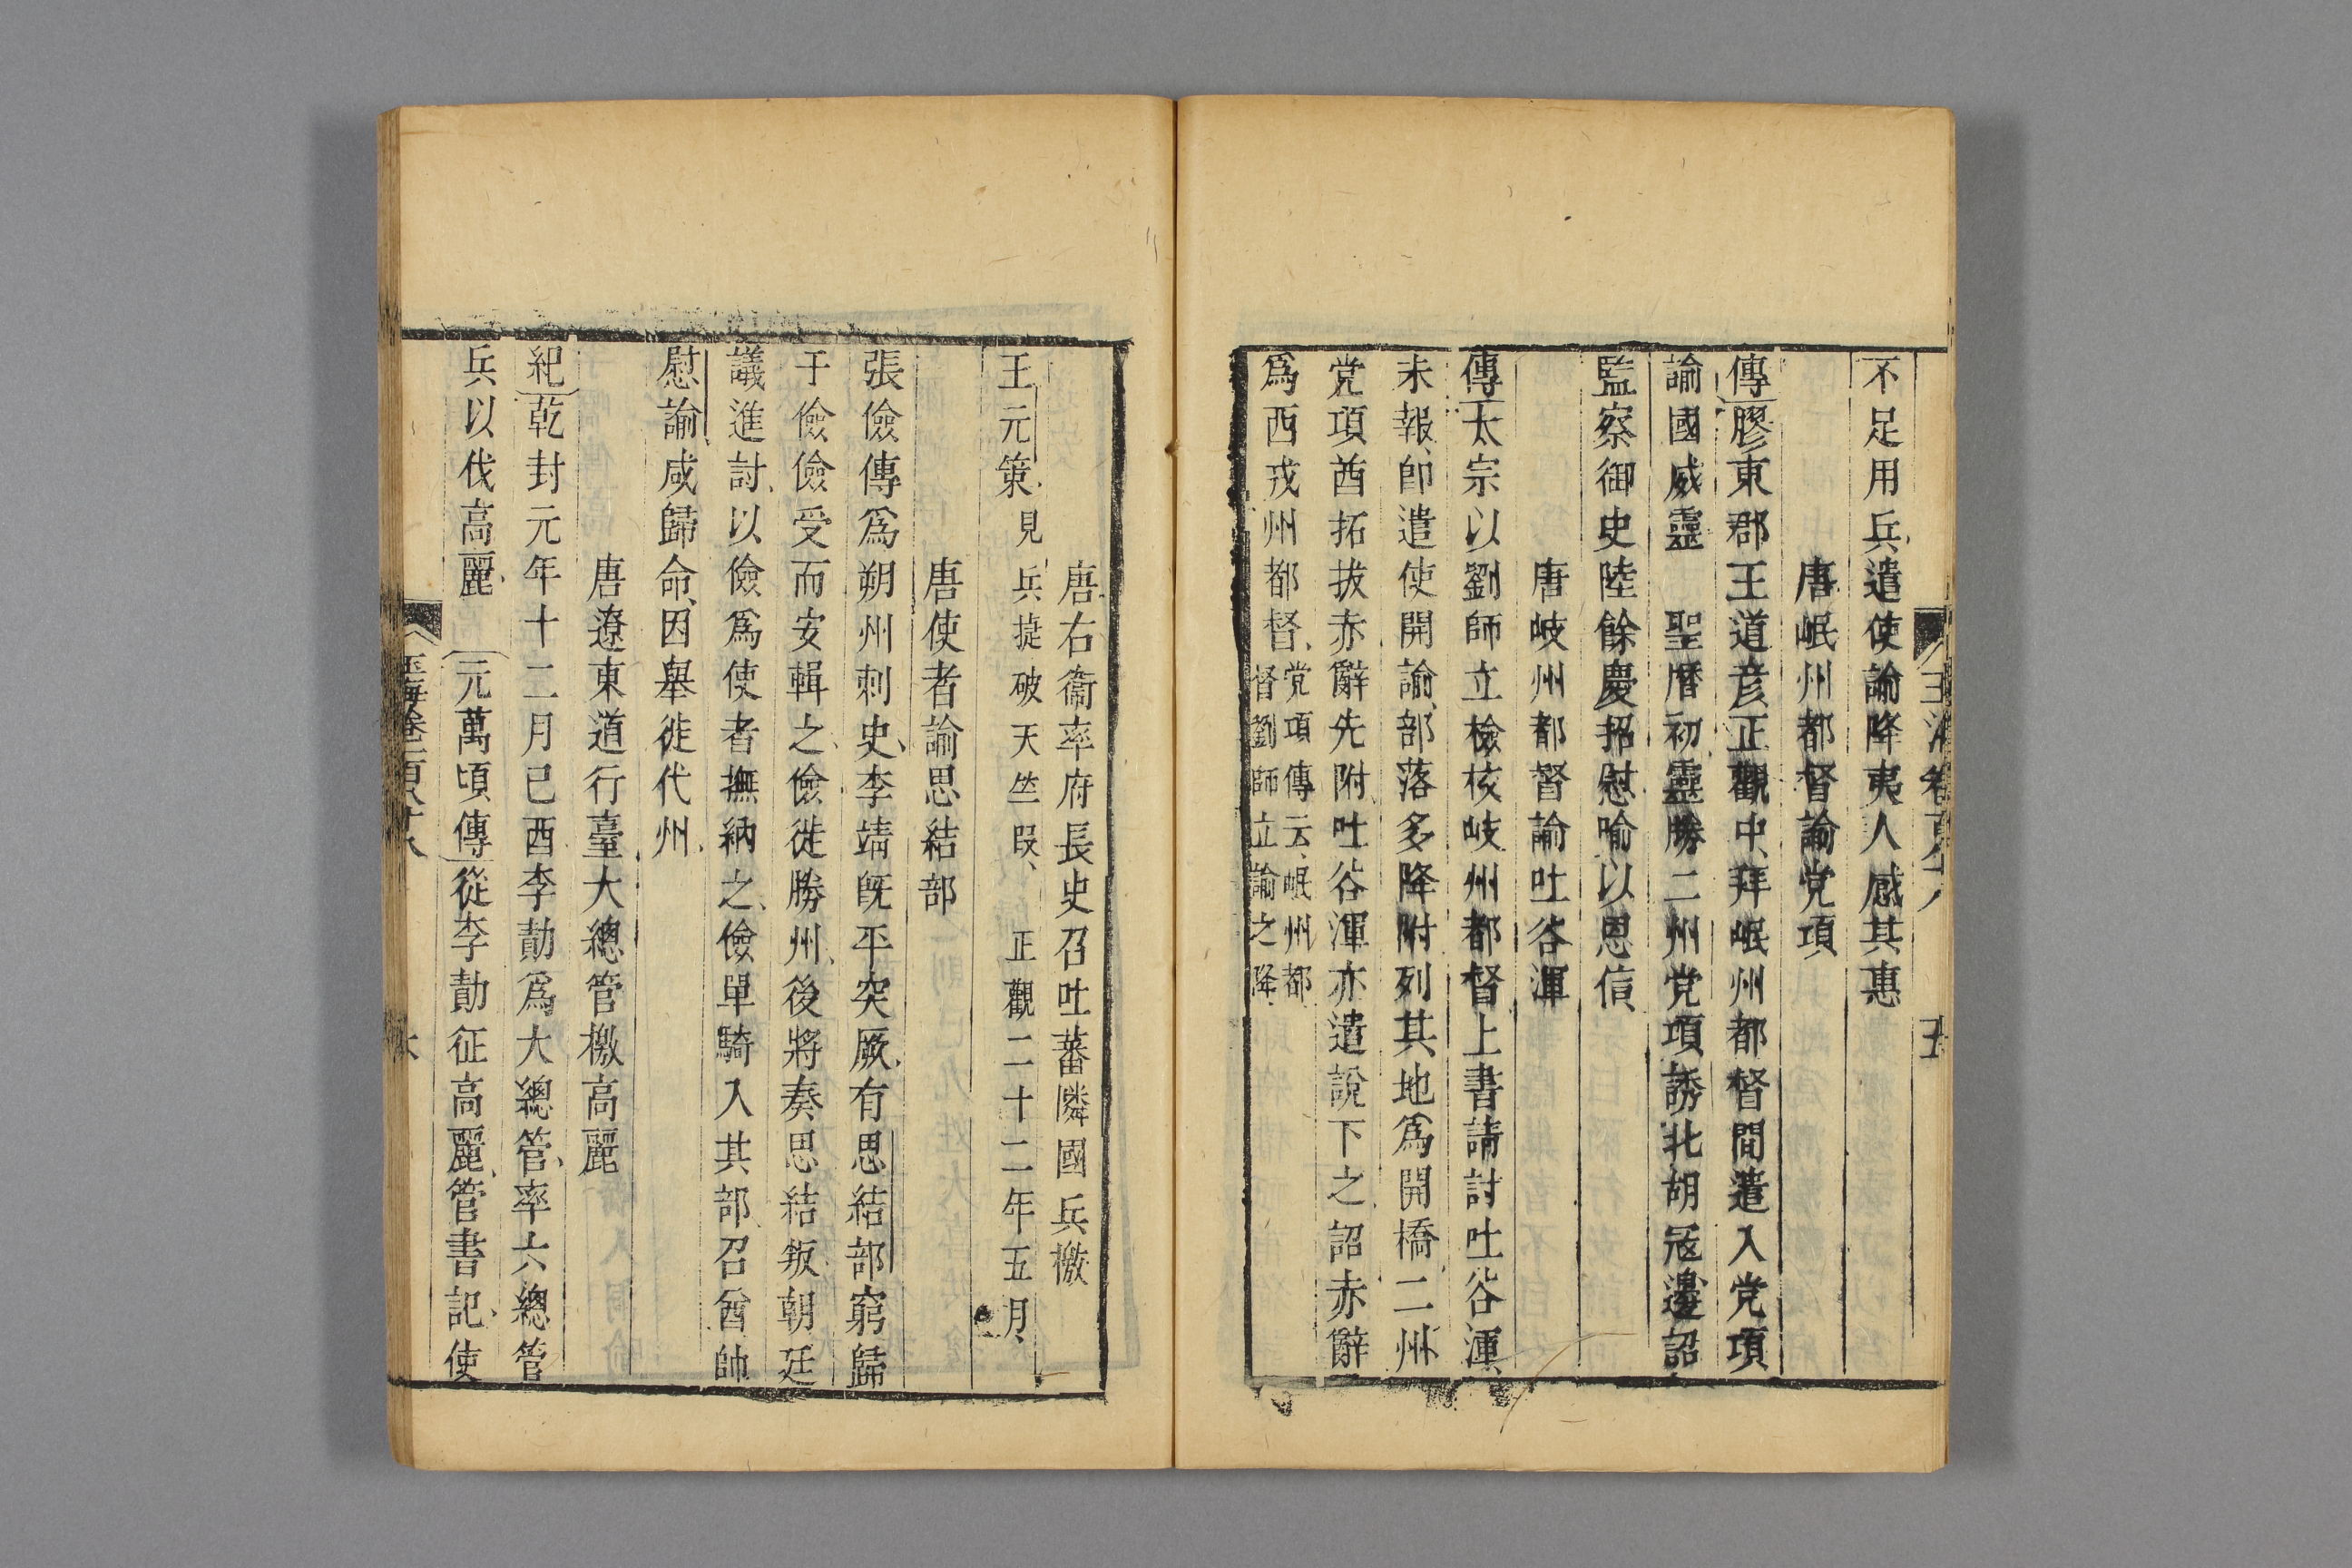 玉海卷 五
不足用兵遣使諭降夷人感其惠
唐岷州都督諭党項
傳膠東郡王道彦正觀中拜岷州都督間遣入党項
諭國威靈 聖曆初靈勝二州党項誘北胡冦邊詔
監察御史陸餘慶招慰喻以恩信
唐岐州都督諭吐谷渾
傳太宗以劉師立檢校岐州都督上書請討吐谷渾
未報即遣使開諭部落多降附列其地爲開橋二州
党項酋拓拔赤辭先附吐谷渾亦遣說下之詔赤辭
爲西戎州都督党項傳云岷州都
督劉師立諭之降
唐右衞率府長史召吐蕃隣國兵檄
王元策見兵捷破天竺叚 正觀二十二年五月
唐使者諭思結部
張儉傳爲朔州刺史李靖既平突厥有思結部窮歸
于儉儉受而安輯之儉徙勝州後將奏思結叛朝廷
議進討以儉爲使者撫納之儉單騎入其部召酋帥
慰諭咸歸命因舉徙代州
唐遼東道行臺大總管檄高麗
紀乾封元年十二月已酉李勣爲大總管率六總管
兵以伐高麗 元萬頃傳從李勣征高麗管書記使
玉海卷一百八十八 六